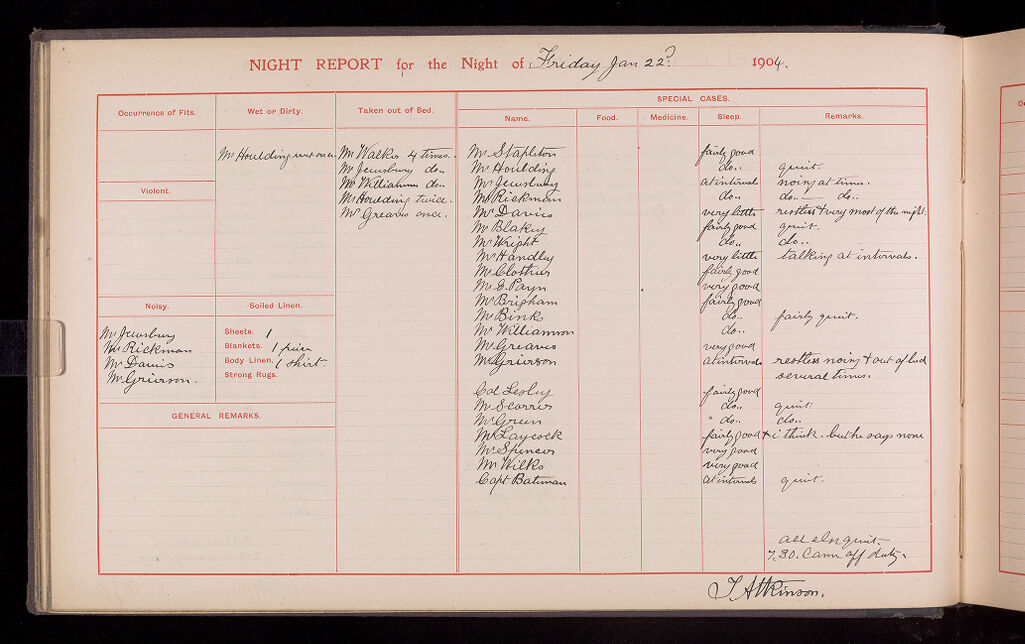 NIGHT REPORT for the Night of Friday Jan 22d 1904.
SPECIAL CASES.
Occurrence of Fits. Wet or Dirty. Taken out of Bed. Name. Food. Medicine. Sleep. Remarks.
Mr Houlding wet once. Mr Walker 4 times. Mr Stapleton fairly good
Mr Jewsbury do.. Mr Houlding do.. quiet.
Violent. Mr Williamson do.. Mr Jewsbury at intervals noisy at times.
Mr Houlding twice. Mr Rickman do.. do.. — do..
Mr Greaves once. Mr Davies very little restless & very most of the night.
Mr Blakey fairly good quiet.
Mr Wright do.. do..
Mr Handley very little talking at intervals.
Mr Clothier fairly good
Mr D. Payn very good
Mr Brigham fairly good
Noisy. Soiled Linen. Mr Binks do.. fairly quiet.
Mr Jewsbury Sheets. 1 Mr Williamson do..
Mr Rickman Blankets. 1 piece Mr Greaves very good
Mr Davies Body Linen. 1 shirt. Mr Grierson at intervals restless noisy & out of bed
Mr Grierson. Strong Rugs. several times.
Col Lesley fairly good
GENERAL REMARKS. Mr Scorris do.. quiet
Mr Green " do.. do..
Mr Laycock fairly good & i think. but he says none
Mr Spencer very good
Mr Wilks very good
Capt Bateman at intervals quiet.
all else quiet.
7.30. Came off duty.
J. Atkinson.